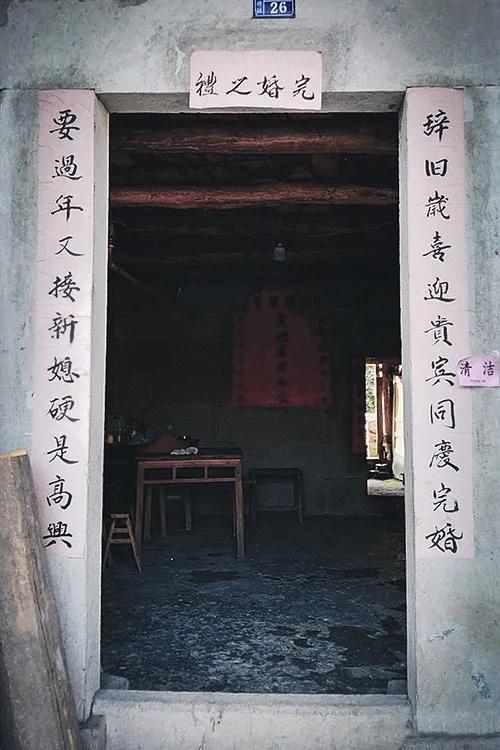 26
完婚之禮
辞旧歲喜迎貴宾同慶完婚
要過年又接新媳硬是高興
清洁